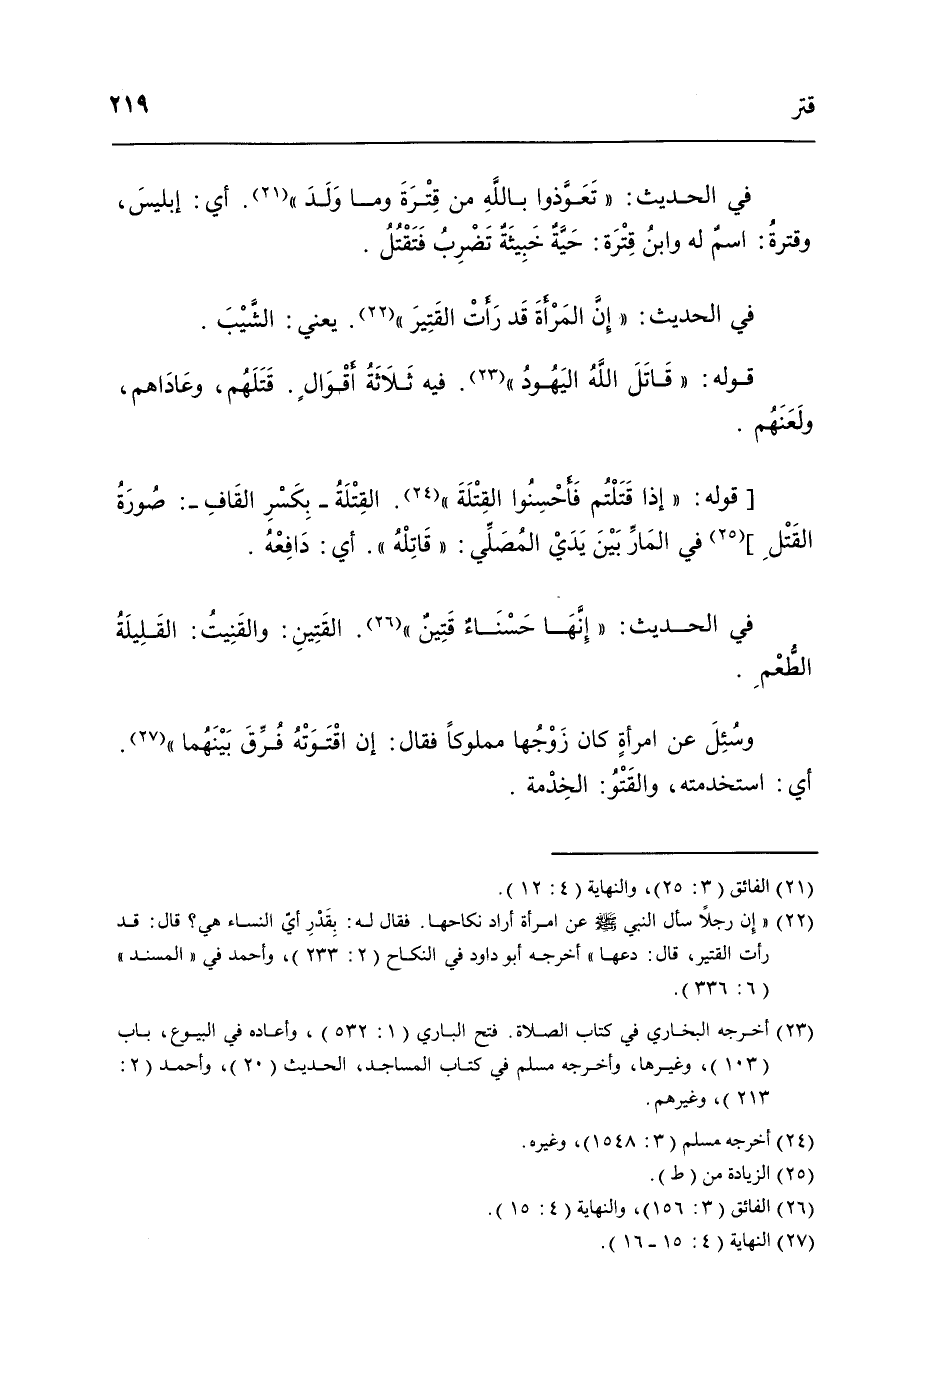 قتر
٢١٩
في الحـديث: « تَعَـوَّذوا بـاللَّهِ من قِتْـرَةَ ومـا وَلَـدَ »(٢١). أي: إبليسَ،
وقترةُ: اسمٌ له وابنُ قِتْرَة: حَيَّةٌ خَبِيثَةٌ تَضْرِبُ فَتَقْتُلُ .
في الحديث: « إِنَّ المَرْأَةَ قَد رَأَتْ القَتِيرَ »(٢٢). يعني: الشَّيْبَ .
قـوله: « قَـاتَلَ اللَّهُ اليَهُـودُ »(٢٣). فيه ثَـلَاثَةُ أَقْـوَالٍ. قَتَلَهُم، وعَادَاهم،
ولَعَنَهُم .
[ قوله: « إذا قَتَلْتُم فَأَحْسِنُوا القِتْلَةَ »(٢٤). القِتْلَةُ ـ بِكَسْرِ القَافِ ـ: صُورَةُ
القَتْلِ ](٢٥) في المَارِّ بَيْنَ يَدَيْ المُصَلِّي: « قَاتِلْهُ ». أي: دَافِعْهُ .
في الحـديث: « إِنَّهَـا حَسْنَـاءُ قَتِينٌ »(٢٦). القَتِينِ: والقَنِيتُ: القَـلِيلَةُ
الطُّعْمِ .
وسُئِلَ عن امرأةٍ كان زَوْجُها مملوكاً فقال: إن اقْتَـوَتْهُ فُـرِّقَ بَيْنَهُما »(٢٧).
أي: استخدمته، والقَتْوُ: الخِدْمة .
(٢١) الفائق ( ٣: ٢٥)، والنهاية ( ٤: ١٢ ).
(٢٢) « إن رجلاً سأل النبي ﷺ عن امـرأة أراد نكاحهـا. فقال لـه: بِقَدْرِ أيّ النسـاء هي؟ قال: قـد
رأت القتير، قال: دعهـا » أخرجـه أبو داود في النكـاح ( ٢: ٢٣٣ )، وأحمد في « المسنـد »
( ٦: ٣٣٦ ).
(٢٣) أخـرجه البخـاري في كتاب الصـلاة. فتح البـاري ( ١: ٥٣٢ ) ، وأعـاده في البيـوع، بـاب
( ١٠٣ )، وغيـرها، وأخـرجه مسلم في كتـاب المساجـد، الحديث ( ٢٠ )، وأحمـد ( ٢:
٢١٣ )، وغيرهم.
(٢٤) أخرجه مسلم ( ٣: ١٥٤٨)، وغيره.
(٢٥) الزيادة من ( ط ).
(٢٦) الفائق ( ٣: ١٥٦)، والنهاية ( ٤: ١٥ ).
(٢٧) النهاية ( ٤: ١٥ ـ ١٦ ).